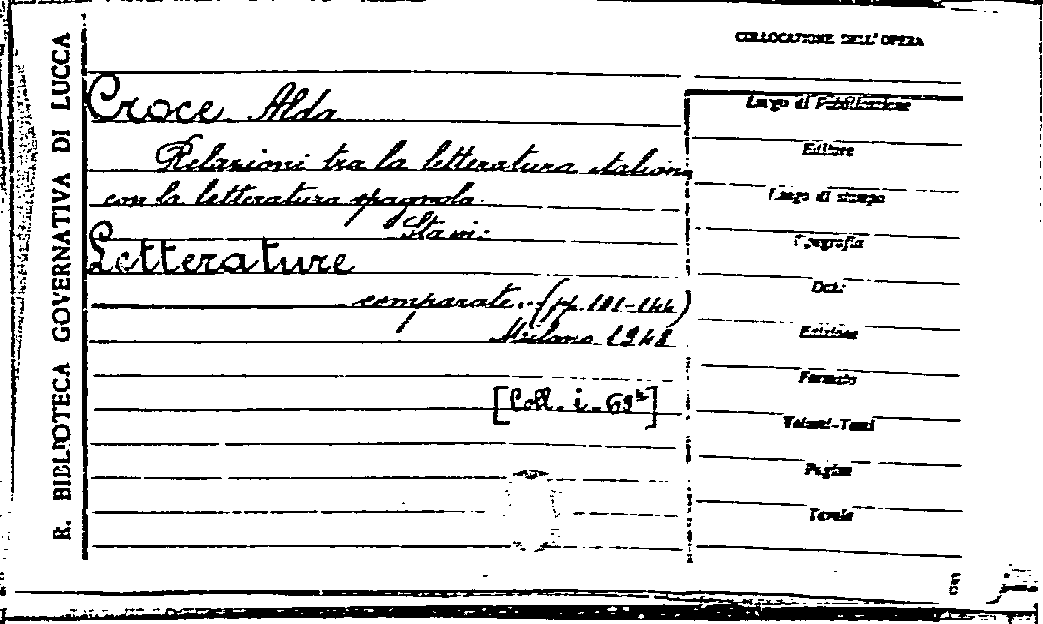 R. BIBLIOTECA GOVERNATIVA DI LUCCA
COLLOCAZIONE DELL' OPERA
Croce Alda
Relazioni tra la letteratura italiana
con la letteratura spagnola.
Stavi:
Letterature
comparate.. (pp. 101-144)
Milano 1948
[Coll. i. 69⁴]
Luogo di Pubblicazione
Editore
Luogo di stampa
Tipografia
Data
Edizione
Formato
Volumi-Tomi
Pagine
Tavole